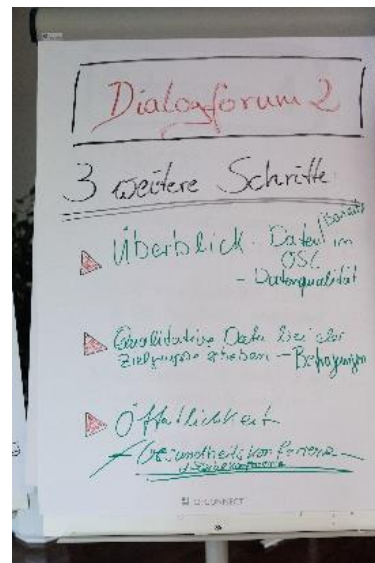 Dialogforum 2
3 weitere Schritte
Überblick - Daten im
OSL
- Datenqualität
Qualitative Daten bei der
Zielgruppe erheben - Befragungen
Öffentlichkeit
Gesundheitskonferenz